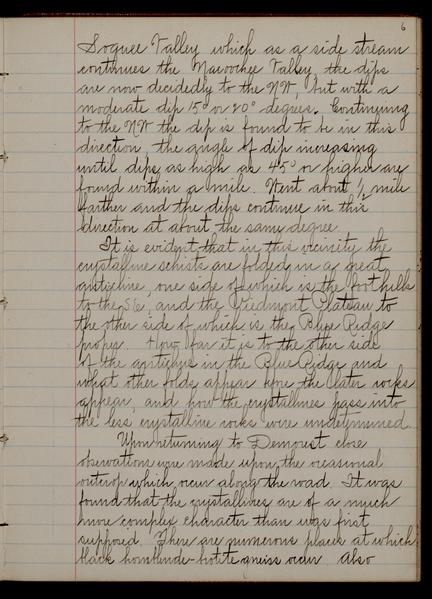 6
Soquee Valley which as a side stream
continues the Nacoochee Valley the dips
are now decidedly to the NW, but with a
moderate dip 15° or 20° degrees. Continuing
to the NW the dip is found to be in this
direction the angle of dip increasing
until dips as high as 45° or higher are
found within a mile. Went about ½ mile
farther and the dips continue in this
direction at about the same degree.
It is evident that in this vicinity the
crystalline schists are folded in a great
anticline, one side of which is the foothills
to the SE, and the Piedmont Plateau to
the other side of which is the Blue Ridge
proper. How far it is to the other side
of the anticline in the Blue Ridge and
what other folds appear before the later rocks
appear, and how the crystallines pass into
the less crystalline rocks were undetermined.
Upon returning to Demorest close
observations were made upon the occasional
outcrop which occur along the road. It was
found that the crystallines are of a much
more complex character than was first
supposed. There are numerous places at which
black hornblende-biotite gneiss occur. Also